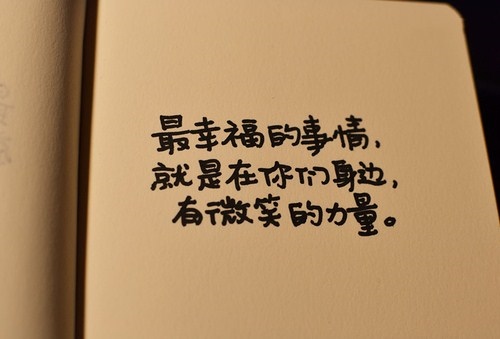 最幸福的事情，
就是在你们身边，
有微笑的力量。